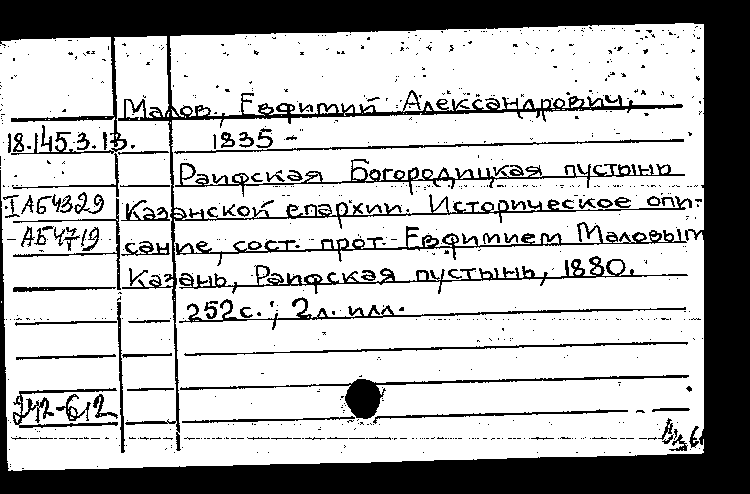 Малов, Евфимий Александрович,
18.145.3.13. 1835 -
Раифская Богородицкая пустынь
IАБ4329 Казанской епархии. Историческое опи-
-АБ4719 сание, сост. прот. Евфимием Маловым
Казань, Раифская пустынь, 1880.
252с.; 2л. илл.
242-612